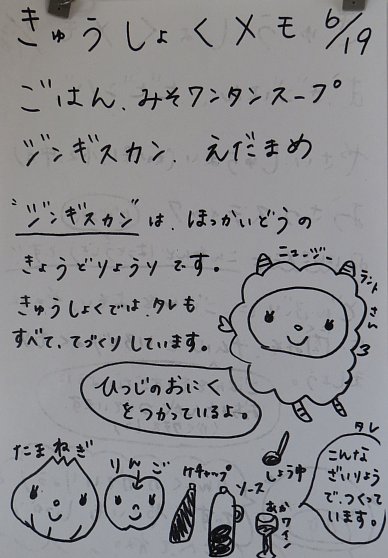 きゅうしょくメモ 6/19
ごはん、みそワンタンスープ
ジンギスカン、えだまめ
"ジンギスカン"は、ほっかいどうの
きょうどりょうりです。
きゅうしょくでは、タレも
すべて、てづくりしています。
ニュージーランドさん
ひつじのおにく
をつかっているよ。
タレ
こんな
ざいりょう
で、つくって
います。
たまねぎ
りんご
ケチャップ
ソース
しょうゆ
あかワイン